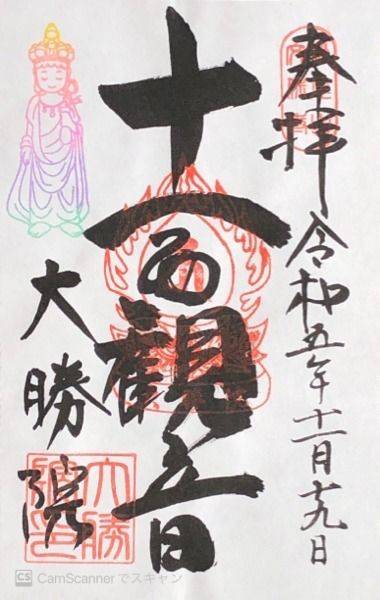 奉拝
令和五年十一月十九日
十一面観音
大勝院
CS CamScanner でスキャン